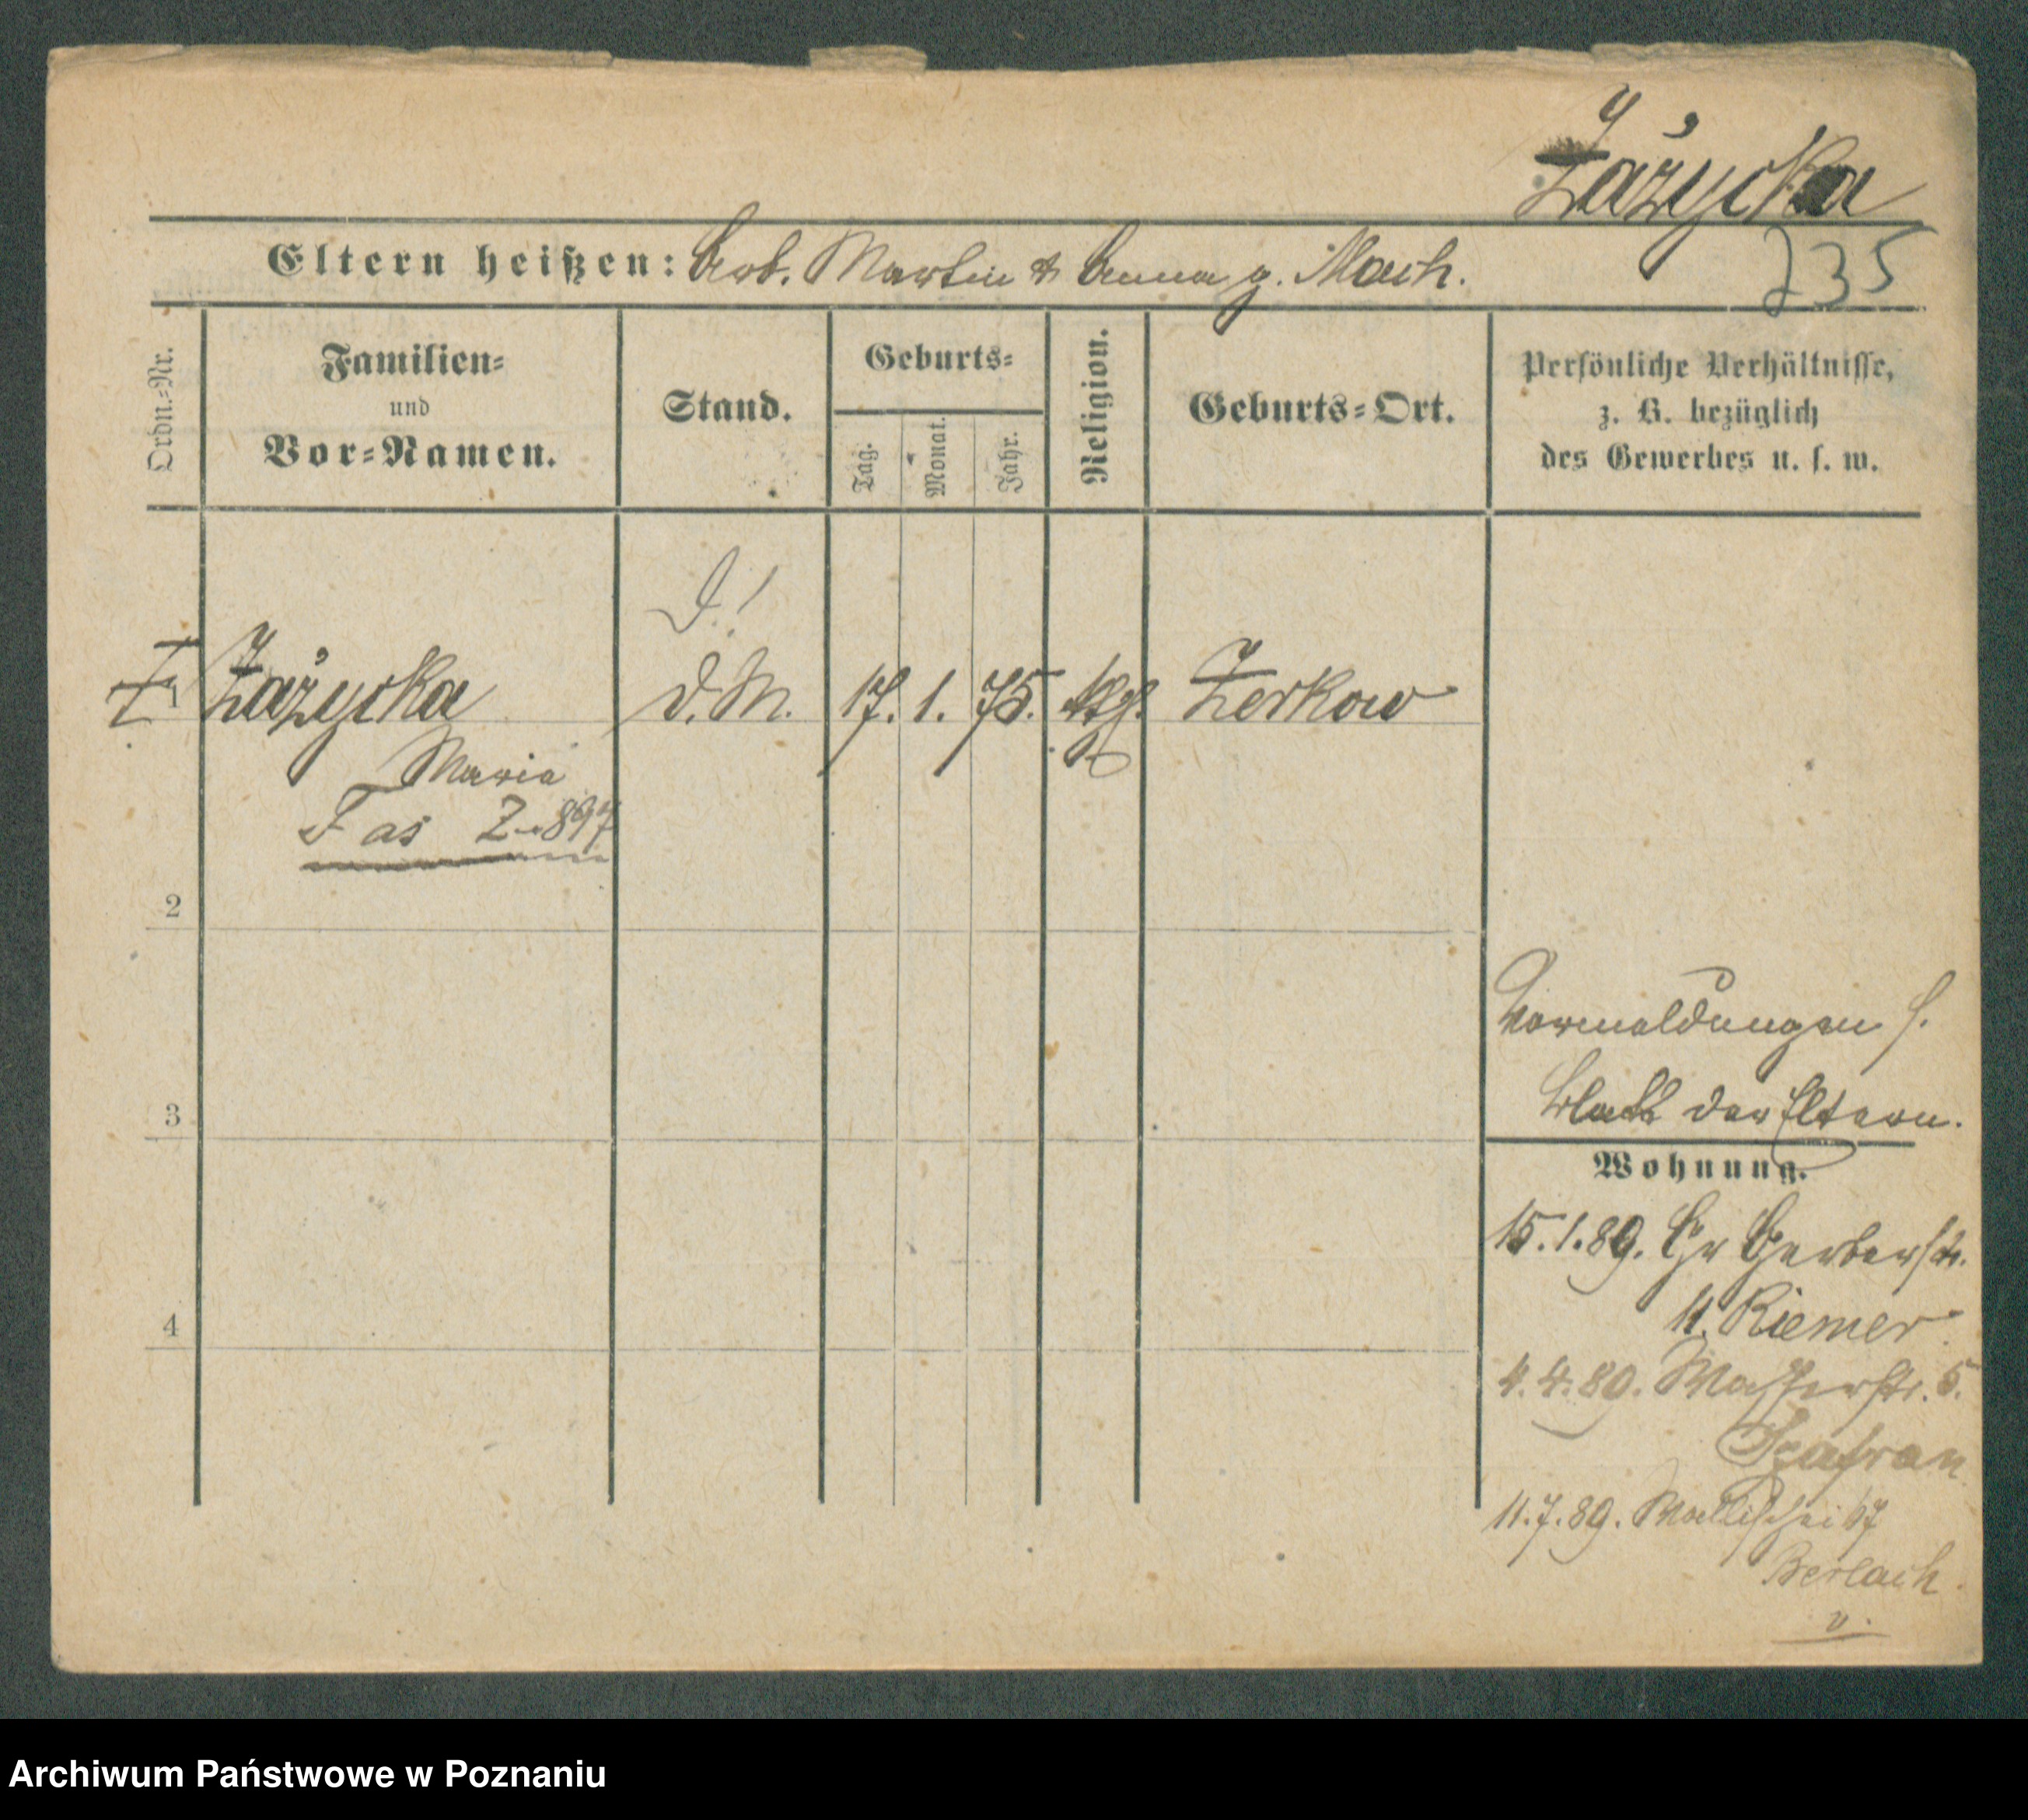 Zażycka
735
Eltern heißen: Arb. Martin & Anna g. Mach.
Ordn.-Nr.
Familien-
und
Vor-Namen.
Stand.
Geburts-
Tag.
Monat.
Jahr.
Religion.
Geburts-Ort.
Persönliche Verhältnisse,
z. B. bezüglich
des Gewerbes u. s. w.
1 Zażycka D. M. 17. 1. 75. ktl. Zerkow
Maria
2
3
4
Vormeldungen s.
Blatt der Eltern.
Wohnung.
15.1.89. Gr Gerberstr.
11. Riemer
4.4.89. Wasserstr. 5.
Szafran
11.7.89. Wallischei 17
Berlach
v.
Archiwum Państwowe w Poznaniu